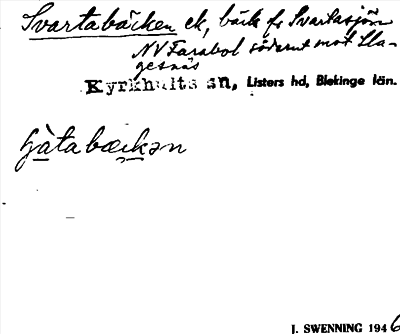 Svartabäcken ek, bäck fr Svartasjön
NV Farabol söderut mot Sla-
gesnäs
Kyrkhults sn, Listers hd, Blekinge län.
gàtabækən
J. SWENNING 1946